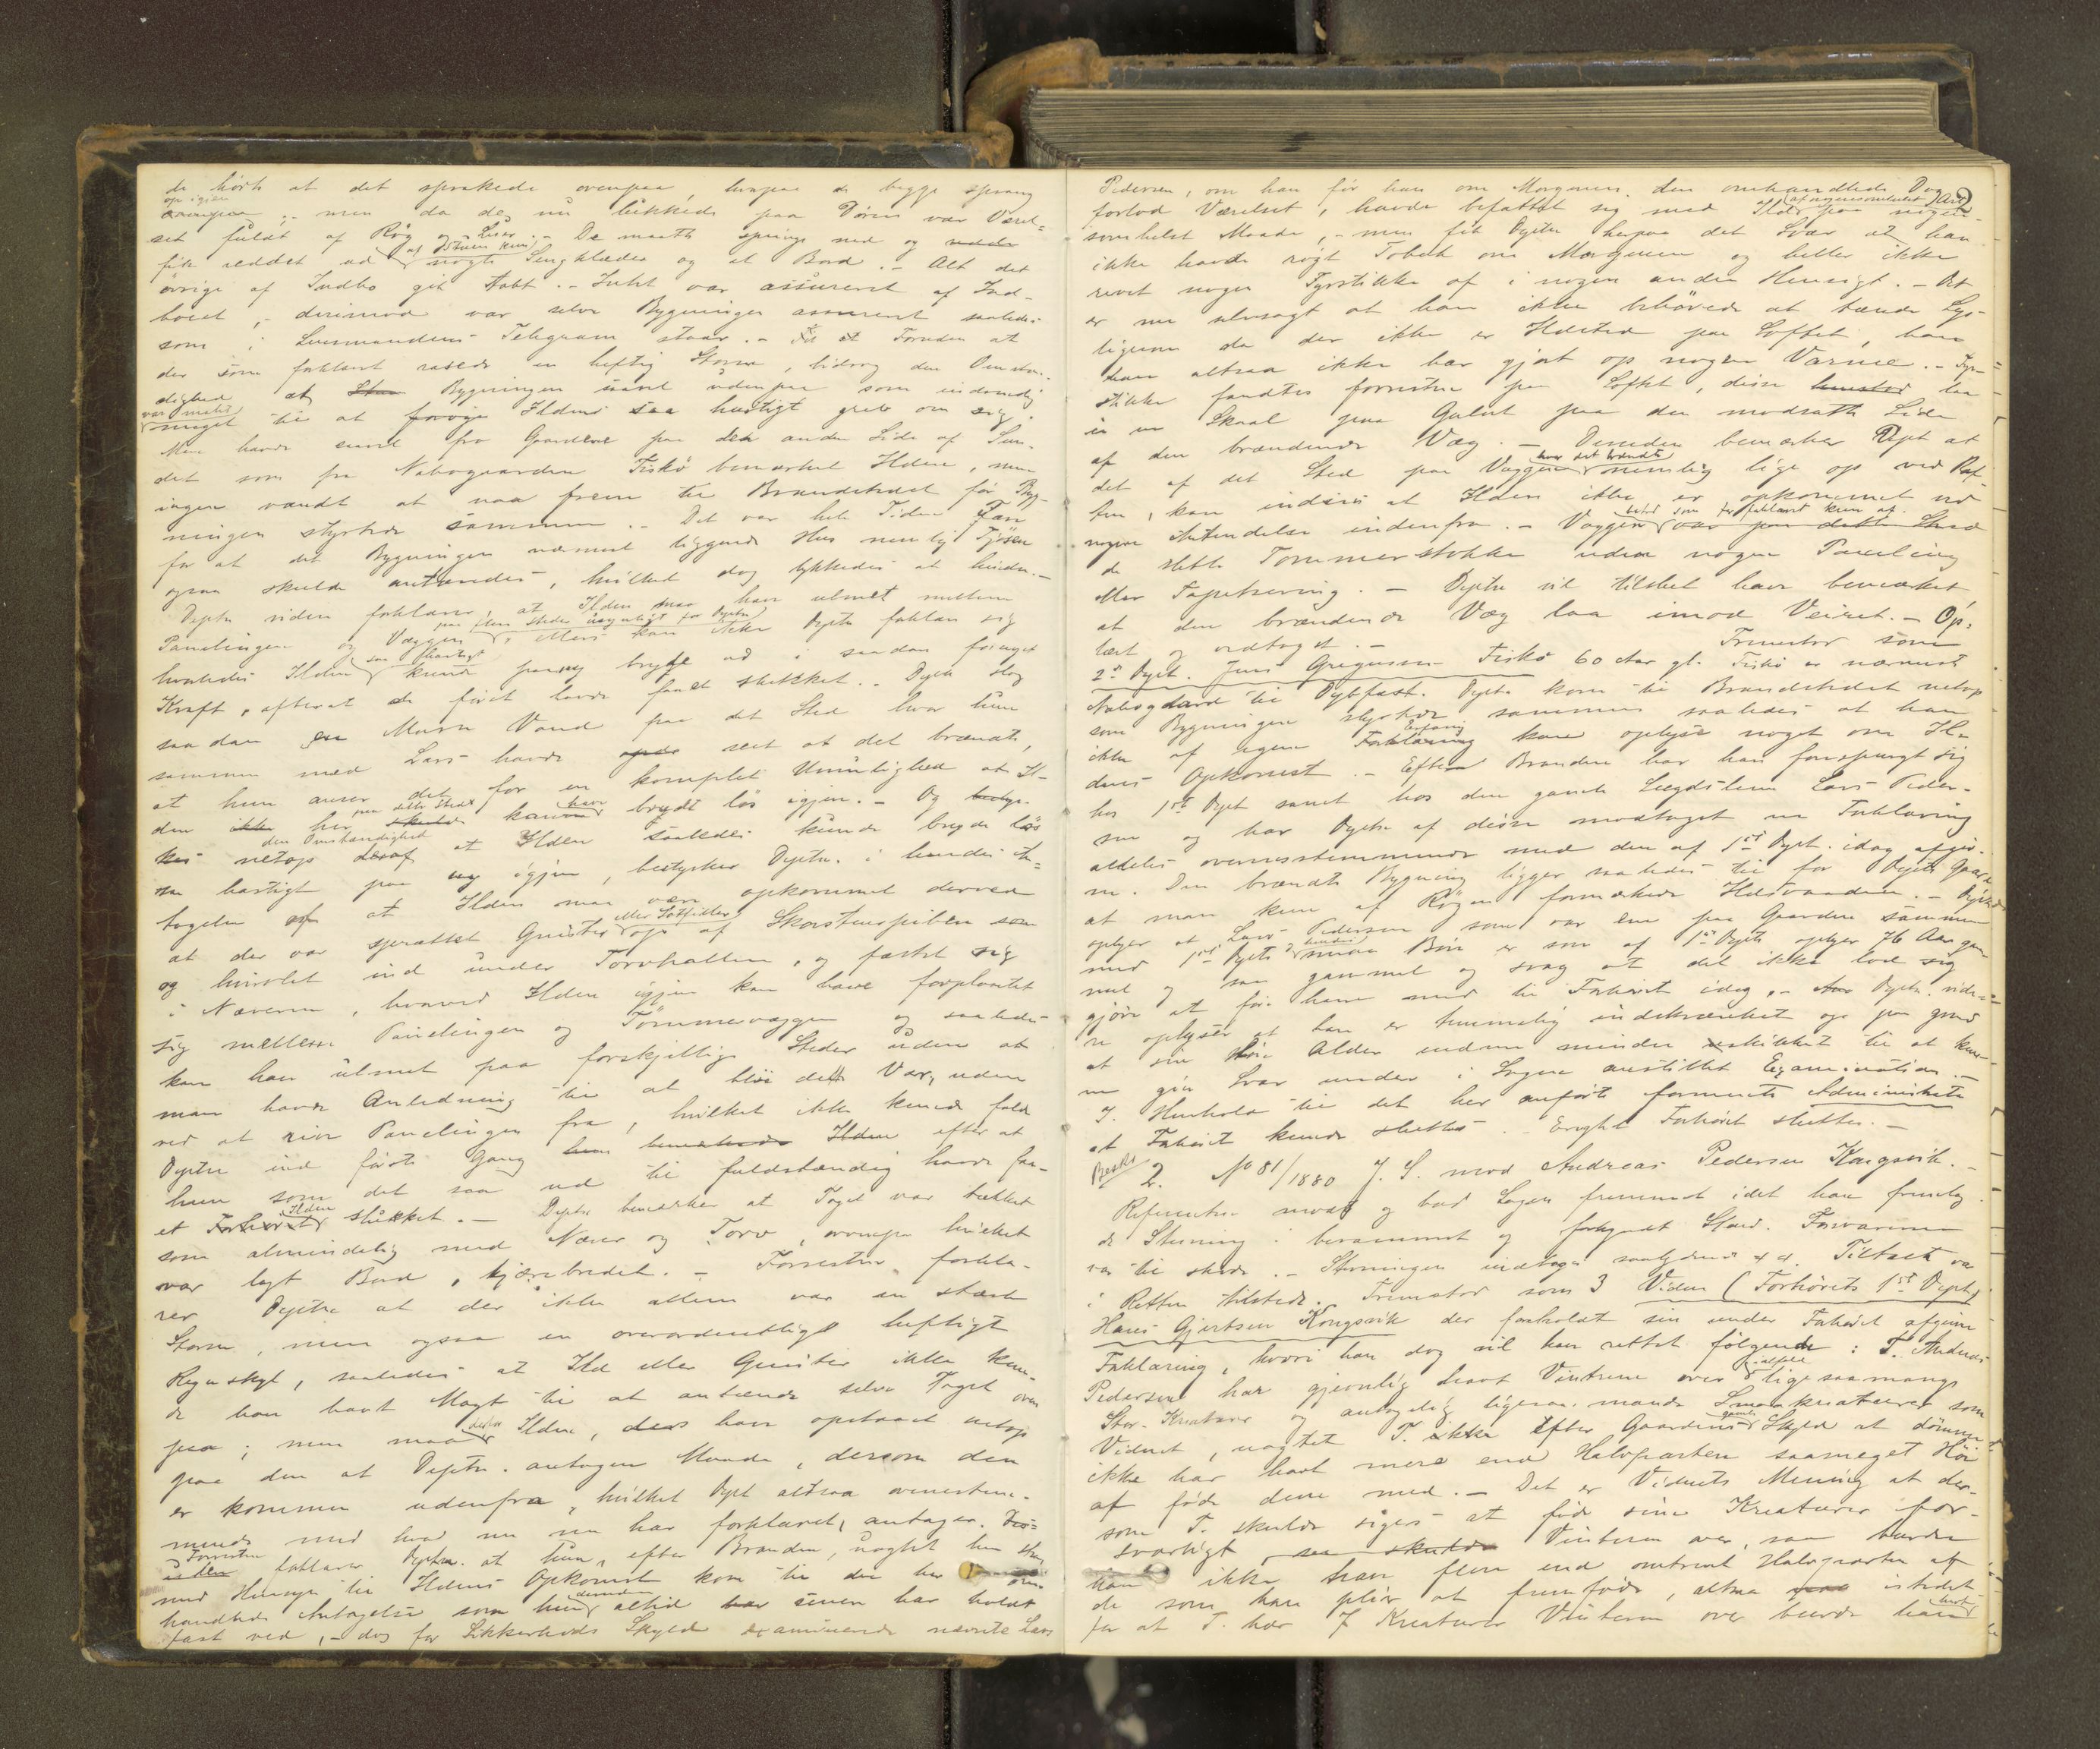 de hørte at det sprakede ovenpaa, hvorpaa de begge sprang
op igjen
ovenpaa; men da de nu lukkede paa Døren var Værel=
set fuldt af Røg og Luer. - De maatte springe ned og
fik reddet ud af Stuen kun nogle Sengklæder og et Bord. - Alt det
øvrige af Indbo gik tabt. - Intet var assureret af Ind-
boet, - derimod var selve Bygningen assureret saaledes
som i Lensmandens Telegram staar. - Foruden at
der som forklaret rasede en heftig Storm, bidrog den Omstæn-
dighed at Bygningen saavel udenpaa som indvendig
var malet
meget til at Ilden saa hastigt greb om sig.
Man havde saavel fra Gaardene paa den anden Side af Sun-
det som fra Nabogaarden Fiskø bemærket Ilden, men
ingen vandt at naa frem til Brandstedet før Byg-
ningen styrtede sammen. - Det var hele Tiden Fare
for at det Bygningen nærmest liggende Hus nemlig Fjøsen
ogsaa skulde antændes, hvilket dog lykkedes at hindre. -
Deptn viden forklarer, at Ilden maa have ulmet mellem
paa flere Steder usynligt for Deptn
Panelingen og Væggen, ellers kan ikke Deptn forklare sig
hvorledes Ilden saa hurtigt kunde paany bryde ud i saadan forøget
Kraft, efterat de først havde faaet slukket. - Deptn slog
saadan en Masse Vand paa det Sted hvor hun
sammen med Lars havde seet at det brændte,
at hun anser det for en komplet Umulighed at Il-
den her paa dette Sted kan have brudt løs igjen. - Og
netop den Omstændighed at Ilden saaledes kunde bryde løs
saa hastigt paa ny igjen, bestyrker Deptn. i hendes An-
tagelse af at Ilden maa være opkommet derved
at der var sprættet Gnister eller Sotfiller op af Skorstenspiben som
og hvirvlet ind under Torvhallen, og fæstet sig
i Næveren, hvorved Ilden igjen kan have forplantet
sig mellem Panelingen og Tømmervæggen og saaledes
kan have ulmet paa forskjellige Steder uden at
man havde Anledning til at blive dette Var, uden
ved at rive Panelingen fra, hvilket ikke kunde falde
Deptn ind første Gang Ilden efter at
hun som det saa ud til fuldstændig havde faa-
et Ilden slukket. - Deptn bemærker at Taget var tækket
som almindelig med Næver og Torv, ovenpaa hvilket
var lagt Bord, kjørebredet. - Forresten forkla-
rer Deptn at der ikke allene var en stærk
Storm, men ogsaa en overordentligt heftigt
Regnskyl, saaledes at Ild eller Gnister ikke kun-
de have havt Magt til at antænde selve Taget oven
paa; men maa derfor Ilden, have opstaaet netop
paa den at Deptn. antagen Maade, dersom den
er kommen udenfra, hvilket Dept altsaa overensstem-
mende med hvad nu har forklaret, antager.
Forresten forklarer Deptn. at hun, efter Branden, uagtet hun
med Hensyn til Ildens Opkomst kom til den her om-
handlede Antagelse som hun desuden altid siden har holdt
fast ved, - dog for Sikkerheds Skyld examinerede nævnte Lars
2
Pedersen, om han før han om Morgenen den omhandlede Dag
forlod Værelset, havde befattet sig med Ild af nogensomhelst Art paa nogen-
somhelst Maade, - men fik Deptn herpaa det Svar at han
ikke havde røgt Tobak om Morgenen og heller ikke
revet nogen Fyrstikke af i nogen anden Hensigt. - Det
er nu ulvsagt at han ikke behøvede at tænde Lys-
ligesom da der ikke er Ildsted paa Loftet, han
han altsaa ikke har gjort op nogen Varme. - Fyr-
stikke fandtes forresten paa Loftet, disse laa
i en Skaal paa Gulvet paa den modsatte Side
af den brændende Væg. - Desuden bemærker Dept at
det af det Sted paa Væggen hvor det brændte nemlig lige op ved Raf-
ten, kan indsees at Ilden ikke er opkommet ved
nogen Antændelse indenfra. - Væggen bestod som før forklaret kun af
de slette Tømmerstokke uden nogen Paneling
eller Tapetsering. - Deptn vil tilslut have bemærket
at den brændende Væg laa imod Veiret. - Op-
læst og vedtaget. -
Fremstod som
2den Dept. Jens Gregusen Fiskø 60 Aar gl. Fiskø er nærmeste
Nabogaard til Dybfest. Deptn kom til Brandstedet netop
som Bygningen styrtede sammen saaledes at han
ikke af egen Erfaring kan oplyse noget om Il-
dens Opkomst. - Efter Branden har han forespurgt sig
hos 1ste Dept samt hos den gamle Lægdslem Lars Peder-
sen og har Deptn af disse modtaget en Forklaring
aldeles overensstemmende med den af 1ste Dept. idag afgiv-
ne. Den brændte Bygning ligger saaledes til for Deptns Gaard
at man kun af Røgen formærkede Ildsvaaden. - Deptn
oplyser at Lars Pedersen som var ene paa Gaarden sammen
med 1ste Deptn & hendes smaa Børn er som af 1ste Deptn oplyst 76 Aar gam-
mel og saa gammel og svag at det ikke lod sig
gjøre at faa ham med til Forhøret idag, - Deptn. vide-
re oplyser at han er temmelig indskrænket og paa grund
at sin Alder endnu mindre skikket til at kun-
ne give Svar under i Sagen anstillet Examination. -
I Henhold til det her anførte formente Administrator
at Forhøret kunde sluttes. - Erygtet Forhøret sluttes. -
2. No 81/1880 J. S. mod Andreas Pedersen Kongsvik. -
Referenten mødte og bad Sagen fremmet idet han fremlag
de Stevning i berammet og forkyndt Stand. Forsvareren
var til stede. - Stevningen indtages saalydende x x. Tiltalte var
i Retten tilstede. Fremstod som 3 Vidne (Forhørets 1ste Dept)
Hans Gjertsen Kongsvik der forholdt sin under Forhøret afgivne
Forklaring, hvori han dog vil have rettet følgende: T. Andreas
Pedersen har gjennlig havt Vintrene over i alfald ligesaamange
Stor-Kreaturer og antagelig ligesaa mange Smaakreaturer som
Vidnet, uagtet T. ikke efter Gaardens gamle Skyld at dømme
ikke har havt mere end Halvparten saameget Hø
af føde dem med. - Det er Vidnets Mening at der-
som T. skulde siges at føde sine Kreaturer for-
svarligt Vinteren over, saa burde
han ikke have flere end omtrent Halvparten af
de som han pleier at fremføde, altsaa istedet-
for at T. har 7 Kreaturer Vinteren over burde han